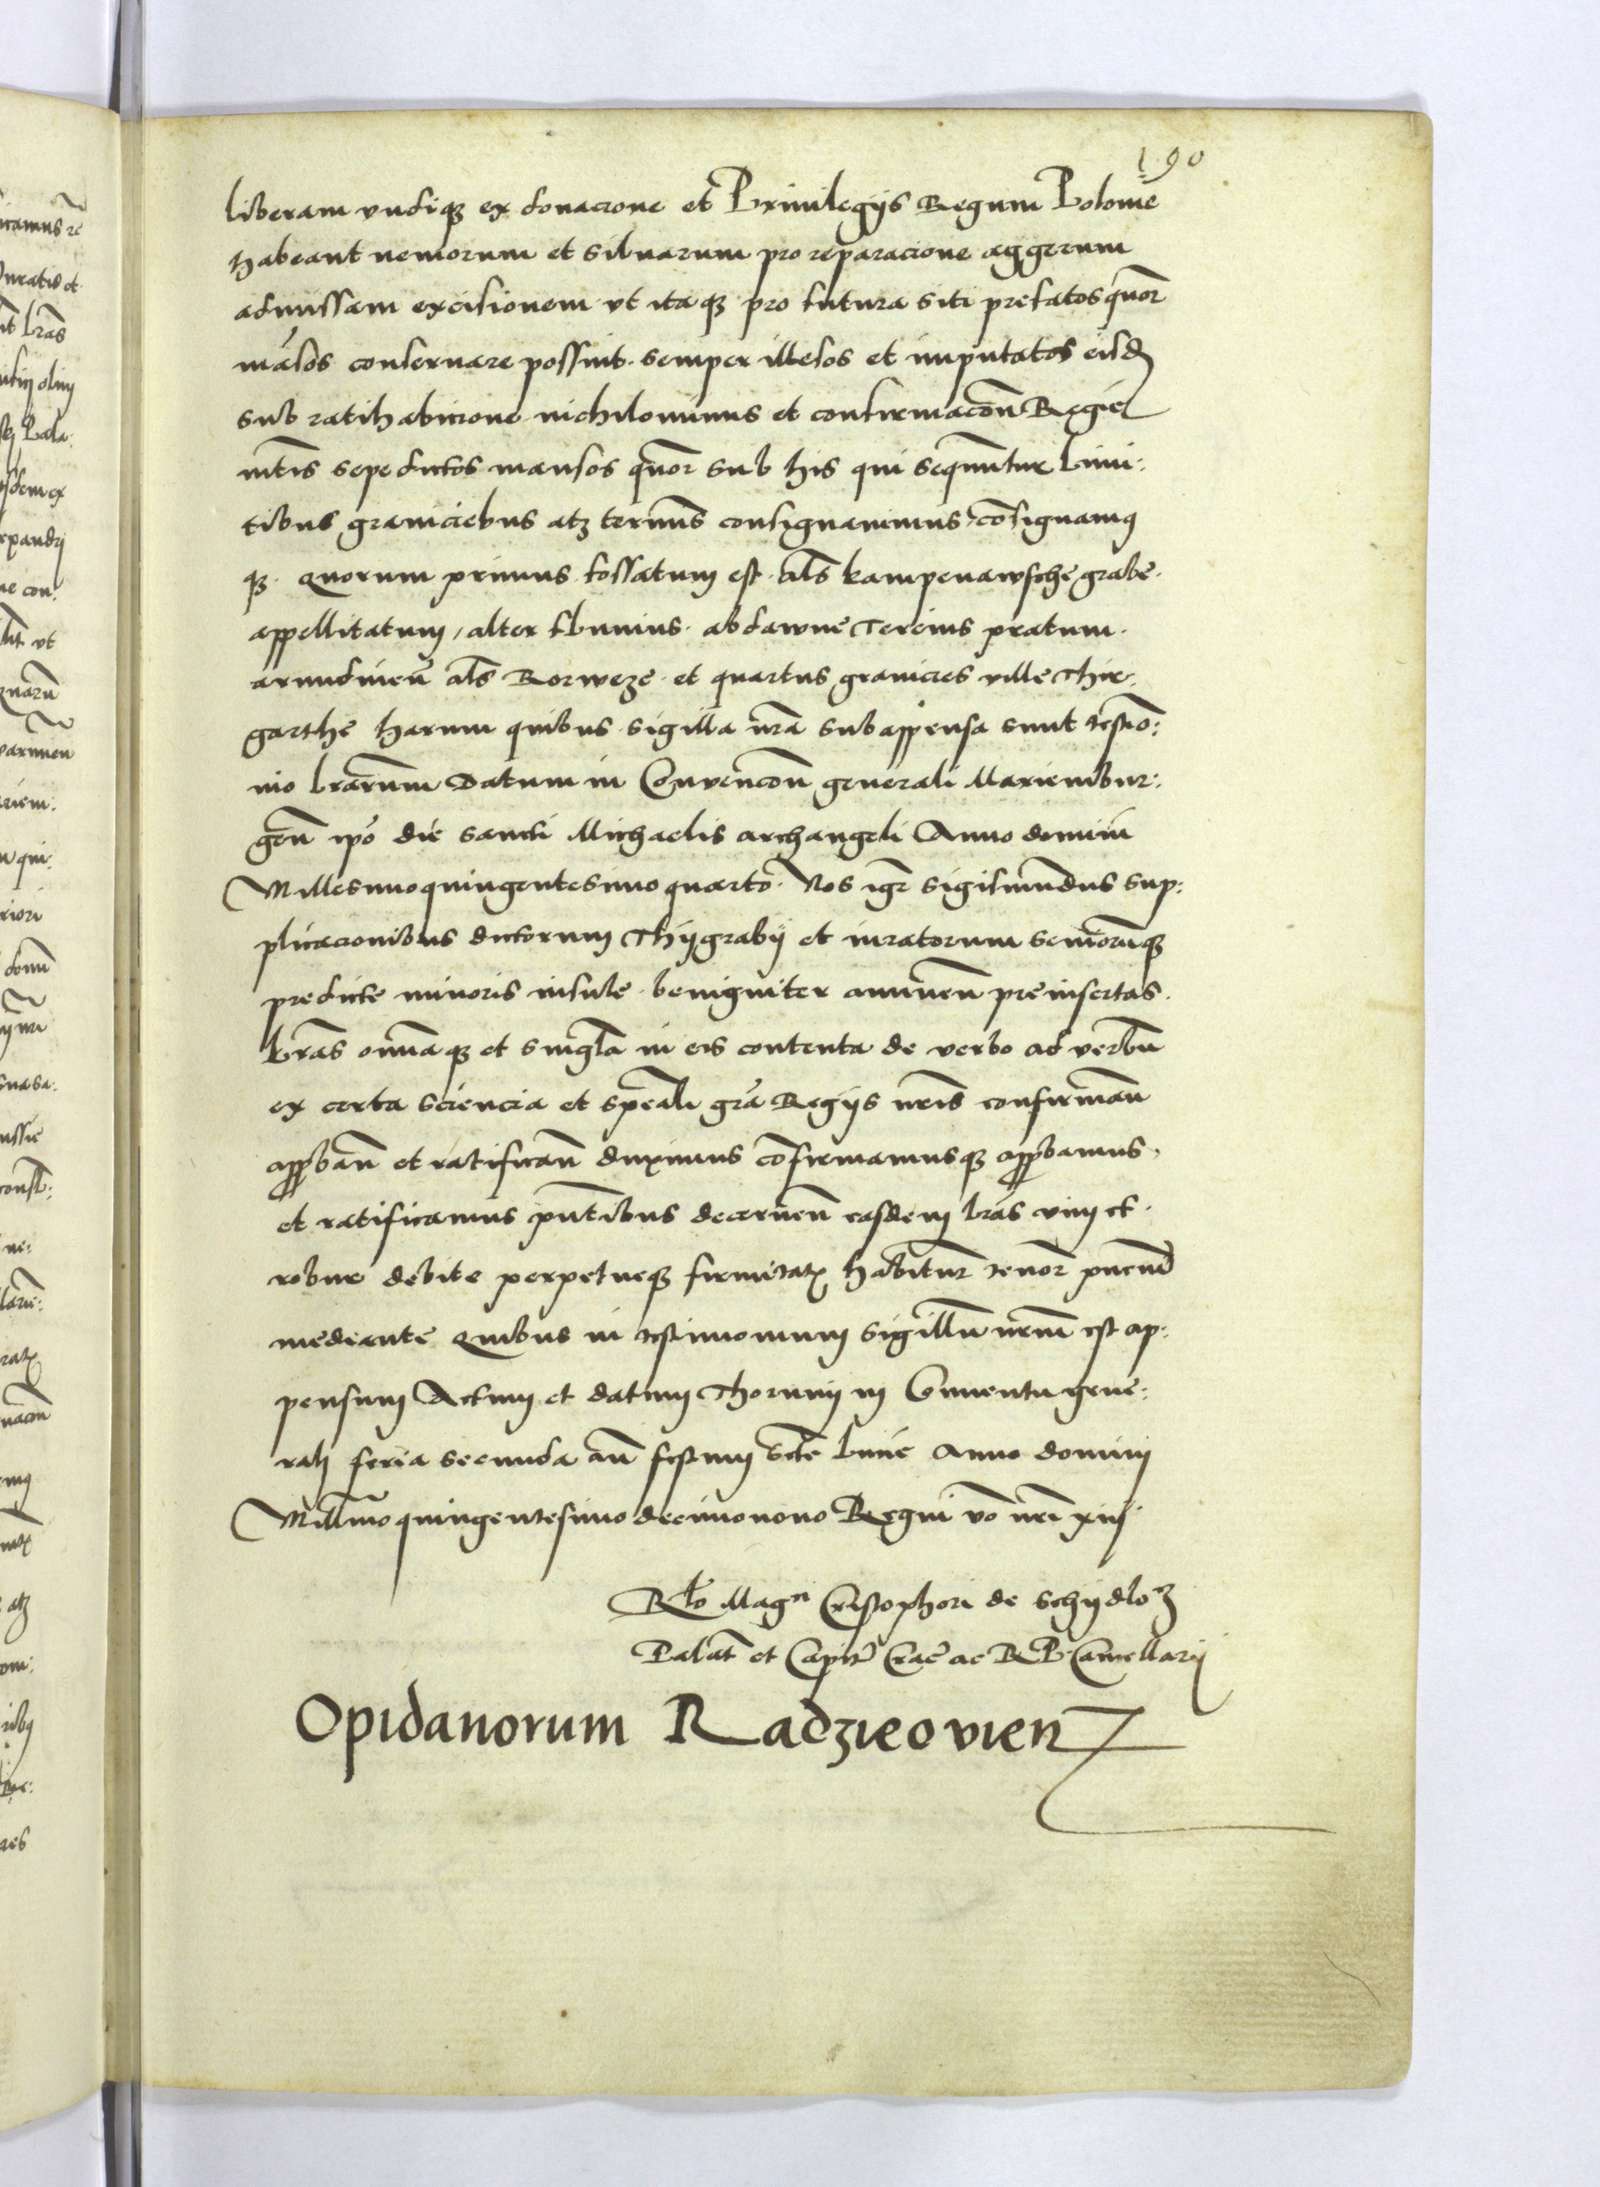 190
liberam vndiqꝫ ex donacione et Priuilegijs Regum Polonie
habeant nemorum et siluarum pro reparacione aggerum
admissam excisionem vt itaqꝫ pro futura siti prefatos quor̄
māsos conseruare possint semper illesos et imputatos eisd
sub ratihabicione nichilominus et confirmacōn Regie
mt̄is sepedictos mansos quor̄ sub his qui sequntur limi:
tibus graniciebus atꝫ termīs consignauimus cōsignamꝰ
qꝫ. Quorum primus fossatum est als̄ kampenawsche grabe
appellitatum, alter fluuius abdawne Tercius pratum
arundineū als̄ Rorweze et quartus granicies ville Thir:
garthe harum quibus sigilla nr̄a subappensa sunt testīo:
nio lrārum Datum in Conuencōn generali Marienbur:
geñ ip̄o die sancti Michaelis archangeli Anno domini
Millesimoquingentesimo quarto. Nos igr̄ Sigismūdus sup:
plicacionibus dictorum Thijgrabij et iuratorum seniorūqꝫ
predicte minoris insule benigniter annueñ preinsertas
lrās om̄iaqꝫ et singl̄a in eis contenta de verbo ad verbū
ex certa sciencia et speāli grā Regijs nr̄is confirmañ
app̄bañ et ratificañ duximus cōfirmamusqꝫ app̄bamus
et ratificamus pn̄tibus decerneñ easdem lrās vim et
robur debite perpetueqꝫ firmitatꝫ habitur̄ tenor̄ pn̄cium
mediante Quibus in testimonium sigillū nr̄um est ap:
pensum Actum et datum Thorunij in Conuentu gene:
rali feria secunda añ festum scte Lucie Anno domini
Mill̄moquingentesimodecimonono Regni v̄o nr̄i xiij
Rlō Magci Cristophori de Schijdlo
Palat̄ et Capit̄ Crac̄ ac R P Cancellarij
Opidanorum Radzieovien